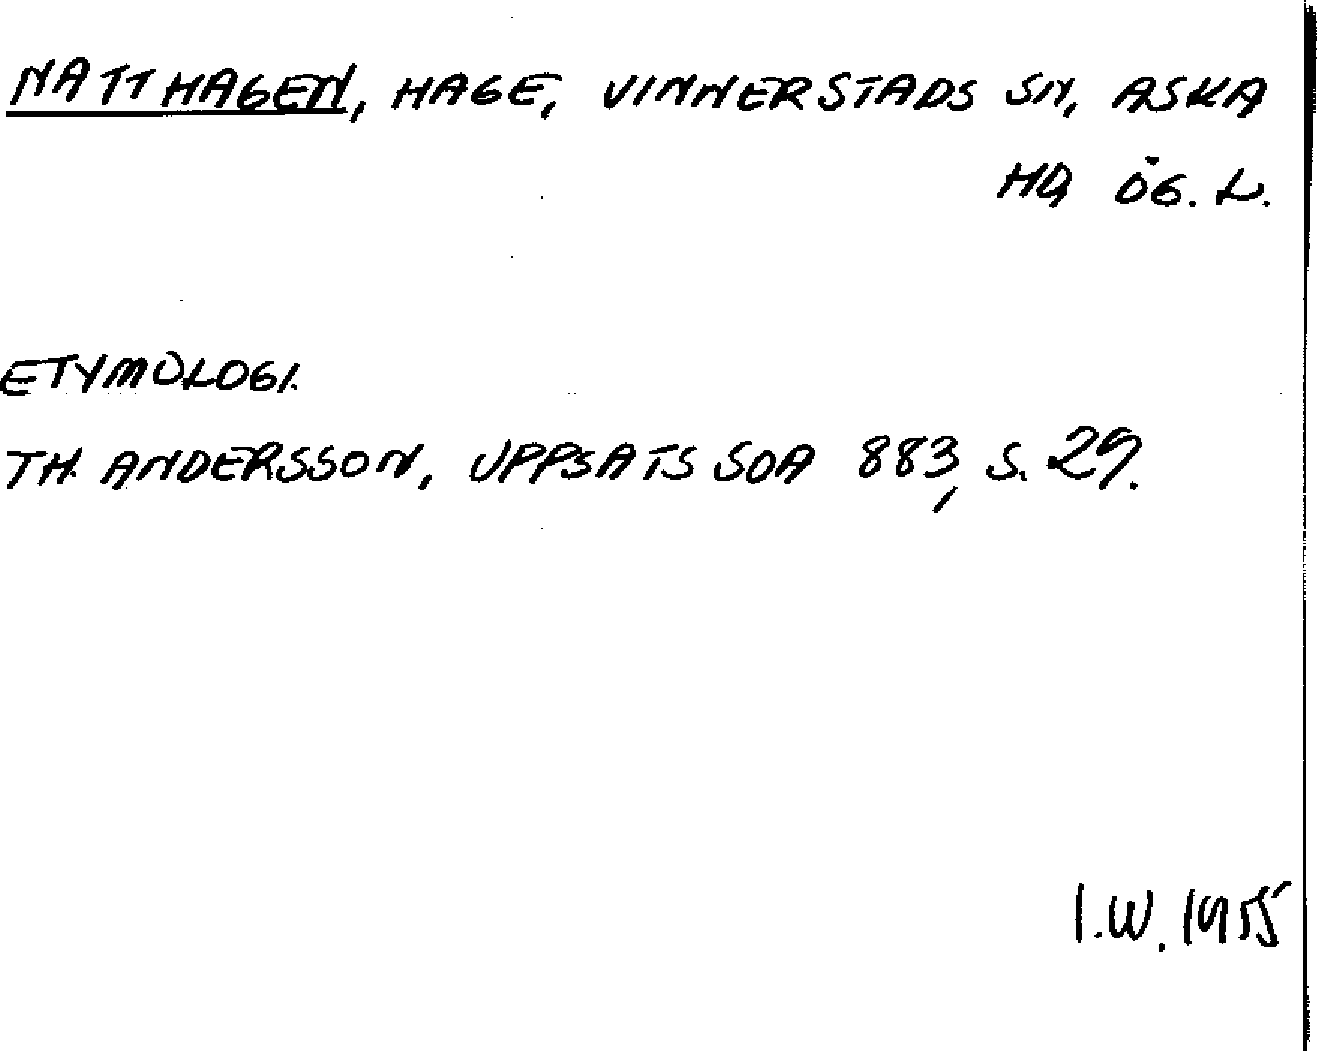 NATTHAGEN, HAGE, VINNERSTADS SN, ASKA
HD ÖG. L.
ETYMOLOGI.
TH. ANDERSSON, UPPSATS SOA 883, S. 29.
I.W. 1955